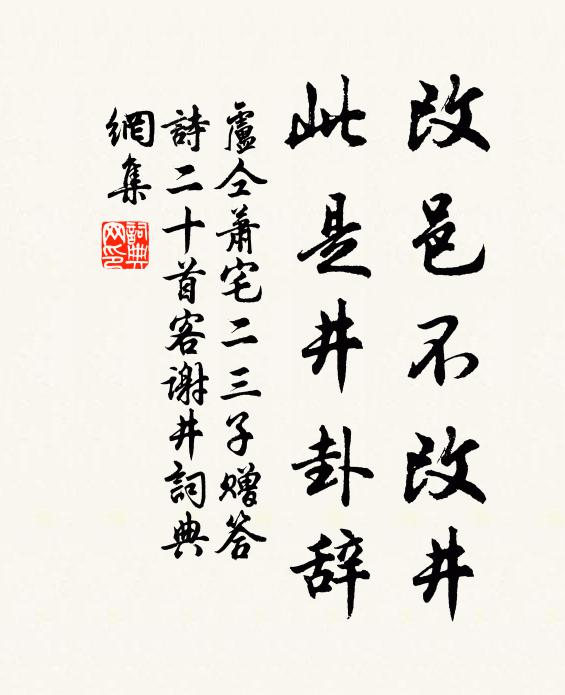 改邑不改井
此是井卦辞
盧仝萧宅二三子赠答
詩二十首客谢井詞典
網集
詞典网印